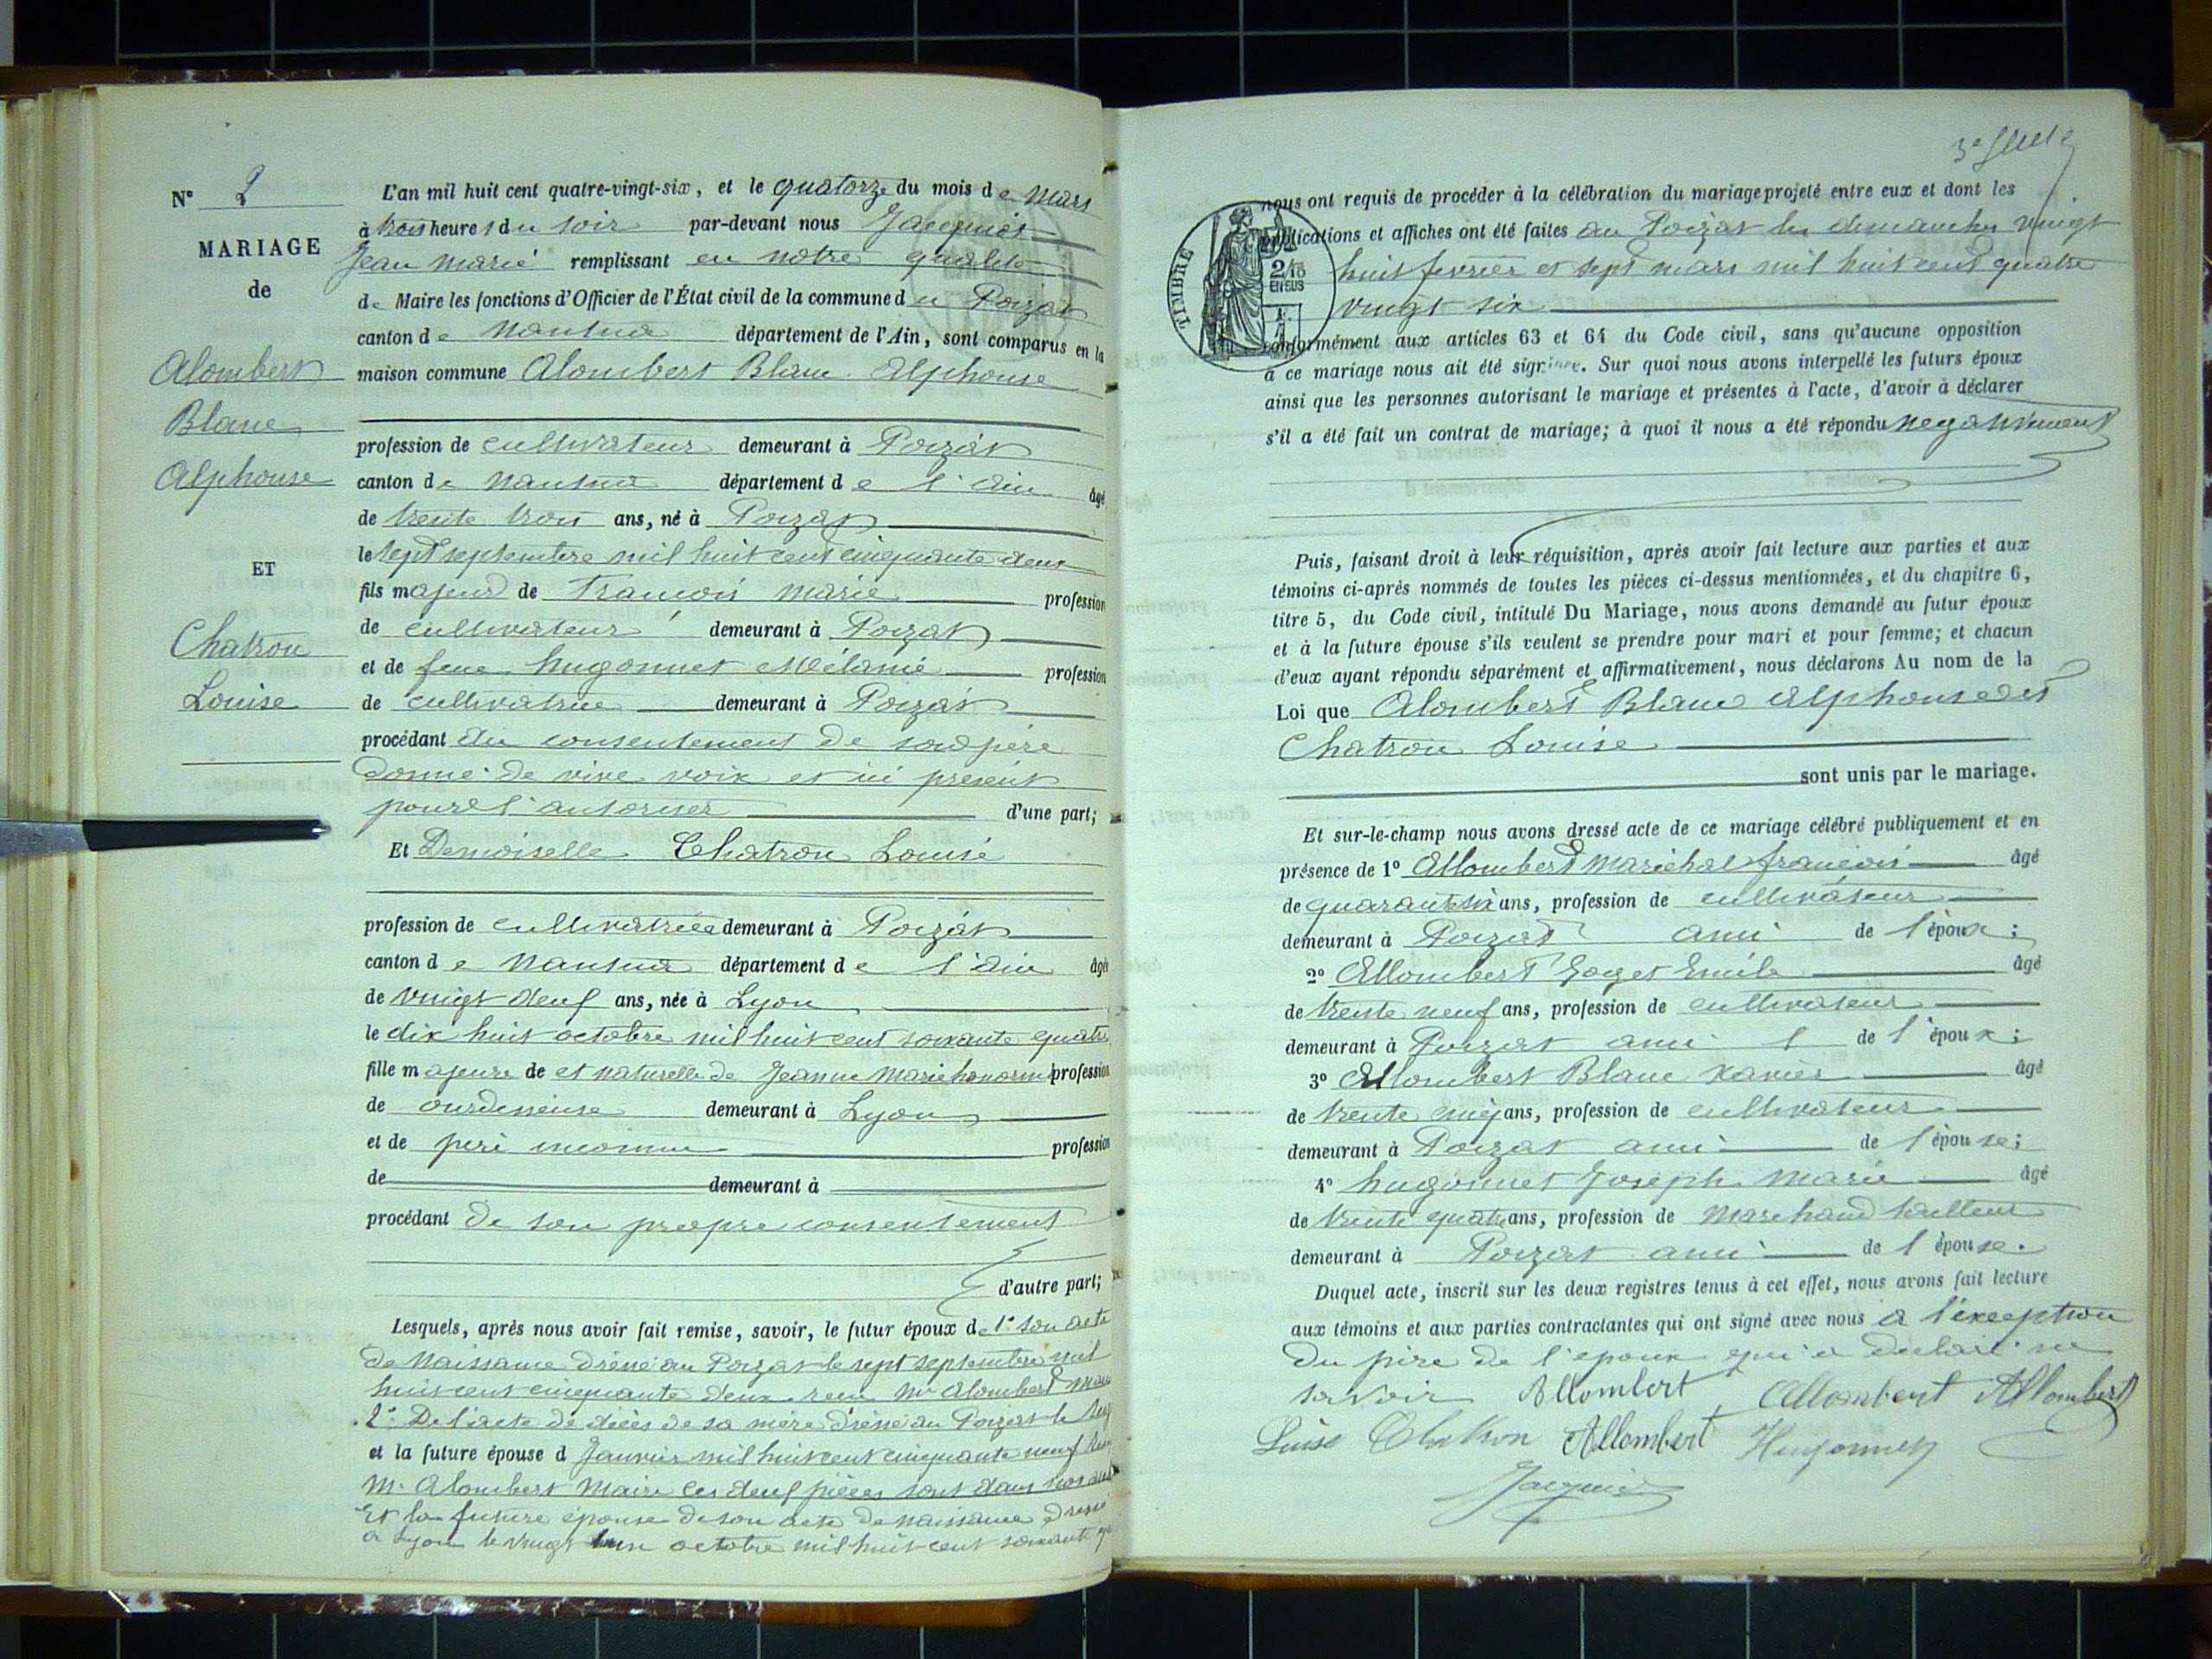 N° 2
MARIAGE
de
Alombert
Blanc
Alphonse
ET
Chatron
Louise
L'an mil huit cent quatre-vingt-six, et le quatorze du mois de Mars
à trois heures du soir par-devant nous Jacquier
Jean Marie remplissant en notre qualité
de Maire les fonctions d'Officier de l'État civil de la commune du Poizat
canton de Nantua département de l'Ain, sont comparus en la
maison commune Alombert Blanc Alphonse
profession de cultivateur demeurant à Poizat
canton de Nantua département de l'Ain âgé
de trente trois ans, né à Poizat
le sept septembre mil huit cent cinquante deux
fils majeur de François Marie profession
de cultivateur demeurant à Poizat
et de feue hugonnet Mélanie profession
de cultivatrice demeurant à Poizat
procédant du consentement de son père
donné de vive voix et ici présent
pour l'autoriser d'une part;
Et Demoiselle Chatron Louise
profession de cultivatrice demeurant à Poizat
canton de Nantua département de l'Ain âgée
de vingt deuf ans, née à Lyon
le dix huit octobre mil huit cent soixante quatre
fille majeure de et naturelle de Jeanne Marie profession
de ourdisseuse demeurant à Lyon
et de père inconnu profession
de demeurant à
procédant de son propre consentement
d'autre part;
Lesquels, après nous avoir fait remise, savoir, le futur époux de 1° son acte
de Naissance dressé au Poizat le sept septembre mil
huit cent cinquante deux reçu Mr Alombert
2° De l'acte de décès de sa mère dressé au Poizat le
et la future épouse d Janvier mil huit cent cinquante neuf
Mr Alombert Maire les deuf pièces sont dans nos
Et la future épouse de son acte de naissance dressé
à Lyon le vingt octobre mil huit cent soixante
nous ont requis de procéder à la célébration du mariage projeté entre eux et dont les
publications et affiches ont été faites au Poizat les dimanches vingt
huit fevrier et sept mars mil huit cent quatre
vingt six
TIMBRE
2/10
EN SUS
conformément aux articles 63 et 64 du Code civil, sans qu'aucune opposition
à ce mariage nous ait été signifiée. Sur quoi nous avons interpellé les futurs époux
ainsi que les personnes autorisant le mariage et présentes à l'acte, d'avoir à déclarer
s'il a été fait un contrat de mariage; à quoi il nous a été répondu negativement
Puis, faisant droit à leur réquisition, après avoir fait lecture aux parties et aux
témoins ci-après nommés de toutes les pièces ci-dessus mentionnées, et du chapitre 6,
titre 5, du Code civil, intitulé Du Mariage, nous avons demandé au futur époux
et à la future épouse s'ils veulent se prendre pour mari et pour femme; et chacun
d'eux ayant répondu séparément et affirmativement, nous déclarons Au nom de la
Loi que Alombert Blanc Alphonse et
Chatron Louise
sont unis par le mariage.
Et sur-le-champ nous avons dressé acte de ce mariage célébré publiquement et en
présence de 1° Allombert Maréchal françois âgé
de quarante six ans, profession de cultivateur
demeurant à Poizat ami de l'époux;
2° Allombert Goget Emile âgé
de trente neuf ans, profession de cultivateur
demeurant à Poizat ami de l'époux;
3° Allombert Blanc Xavier âgé
de trente cinq ans, profession de cultivateur
demeurant à Poizat ami de l'épouse;
4° hugonnet Joseph Marie âgé
de trente quatre ans, profession de Marchand tailleur
demeurant à Poizat ami de l'épouse.
Duquel acte, inscrit sur les deux registres tenus à cet effet, nous avons fait lecture
aux témoins et aux parties contractantes qui ont signé avec nous à l'exception
du père de l'époux qui a déclaré ne
savoir Allombert Allombert Allombert
Luise Chatron Allombert Hugonnet
Jacquier